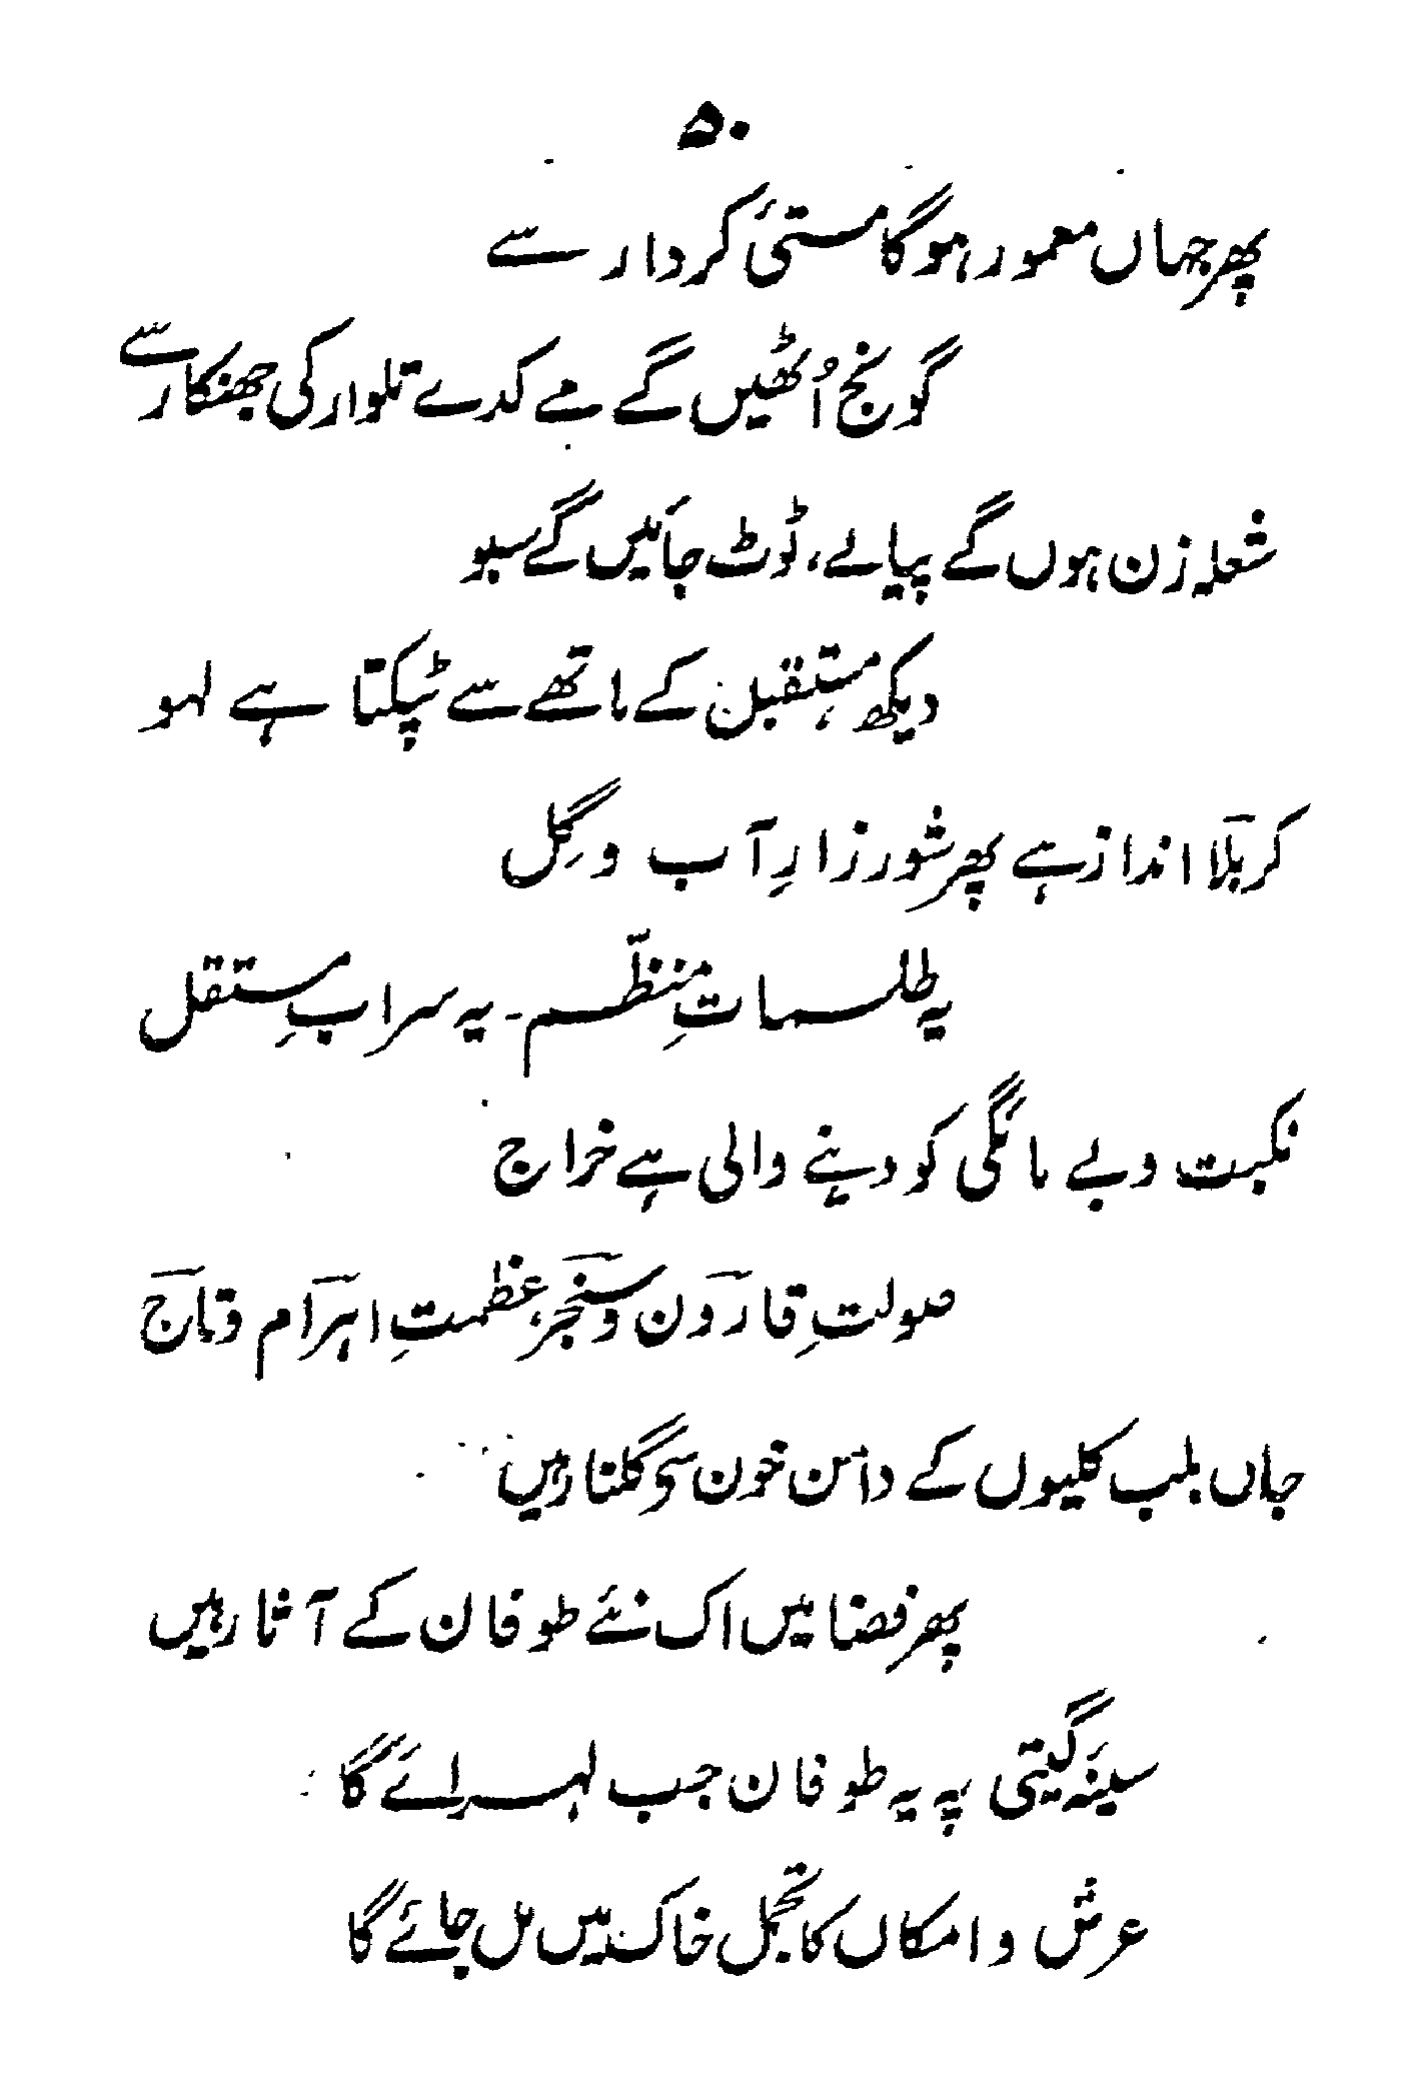 ۵۰
پھر جہاں معمور ہوگا مستئ کردار سے
گونج اُٹھیں گے مے کدے تلوار کی جھنکار سے
شعلہ زن ہوں گے پیالے، ٹوٹ جائیں گے سبو
دیکھ مستقبل کے ماتھے سے ٹپکتا ہے لہو
کربلا انداز ہے پھر شور زارِ آب و گِل
یہ طلسماتِ منظّم۔ یہ سرابِ مستقل
نکبت و بے مائگی کو دینے والی ہے خراج
صولتِ قارون و سنجر، عظمتِ اہرام و تاج
جاں بلب کلیوں کے دامن خون سے گلنار ہیں
پھر فضا میں اک نئے طوفان کے آثار ہیں
سینۂ گیتی پہ یہ طوفان جب لہرائے گا
عرش و امکاں کا تجمل خاک میں مل جائے گا